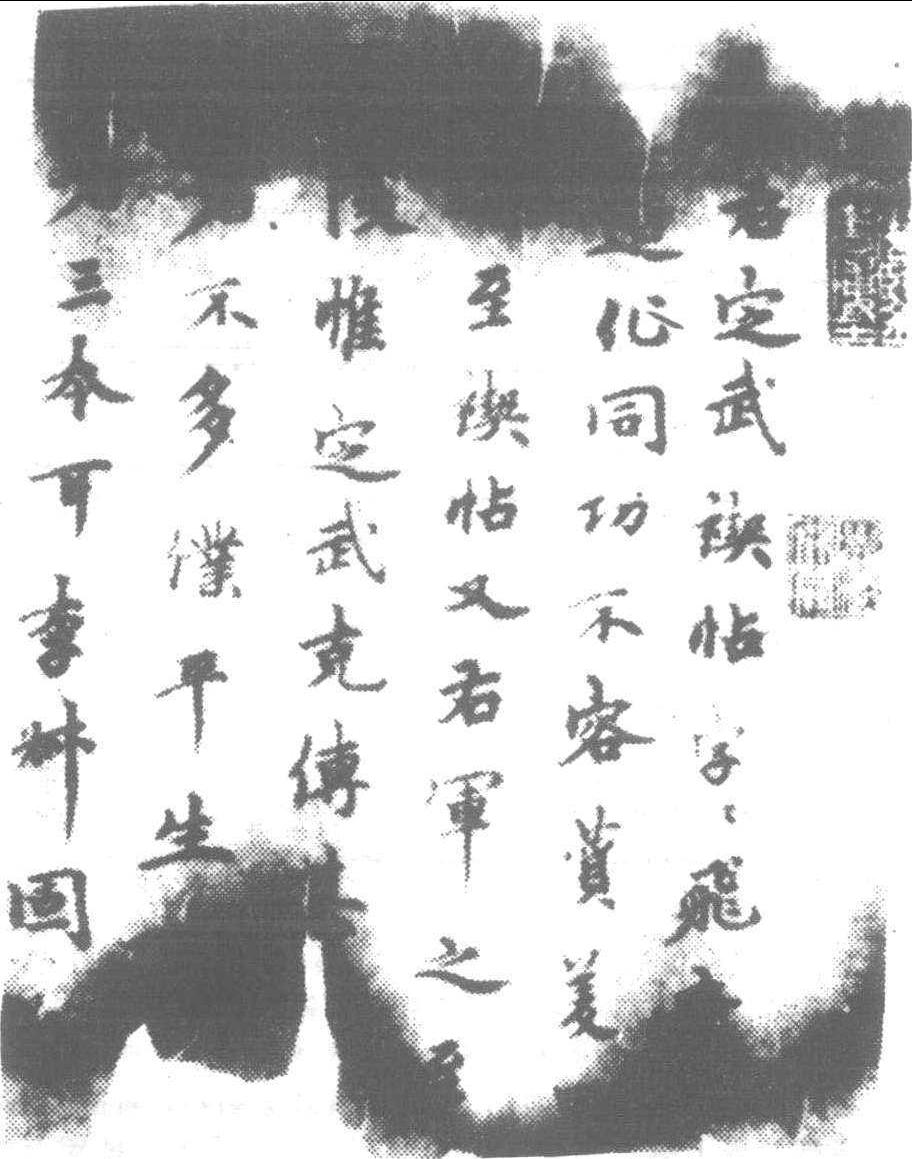 右定武禊帖字〻飛
化同功不容賛美
至禊帖又右軍之至
惟定武克傳其
不多僕平生
三本可李叔固